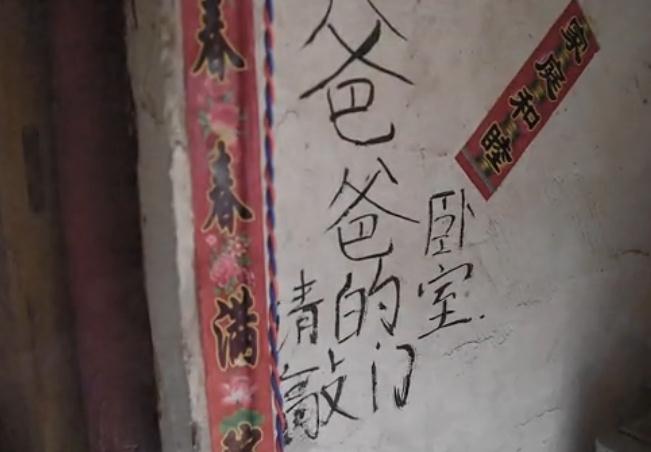 春
春
满
爸
爸
的
卧室.
请敲门
家庭和睦